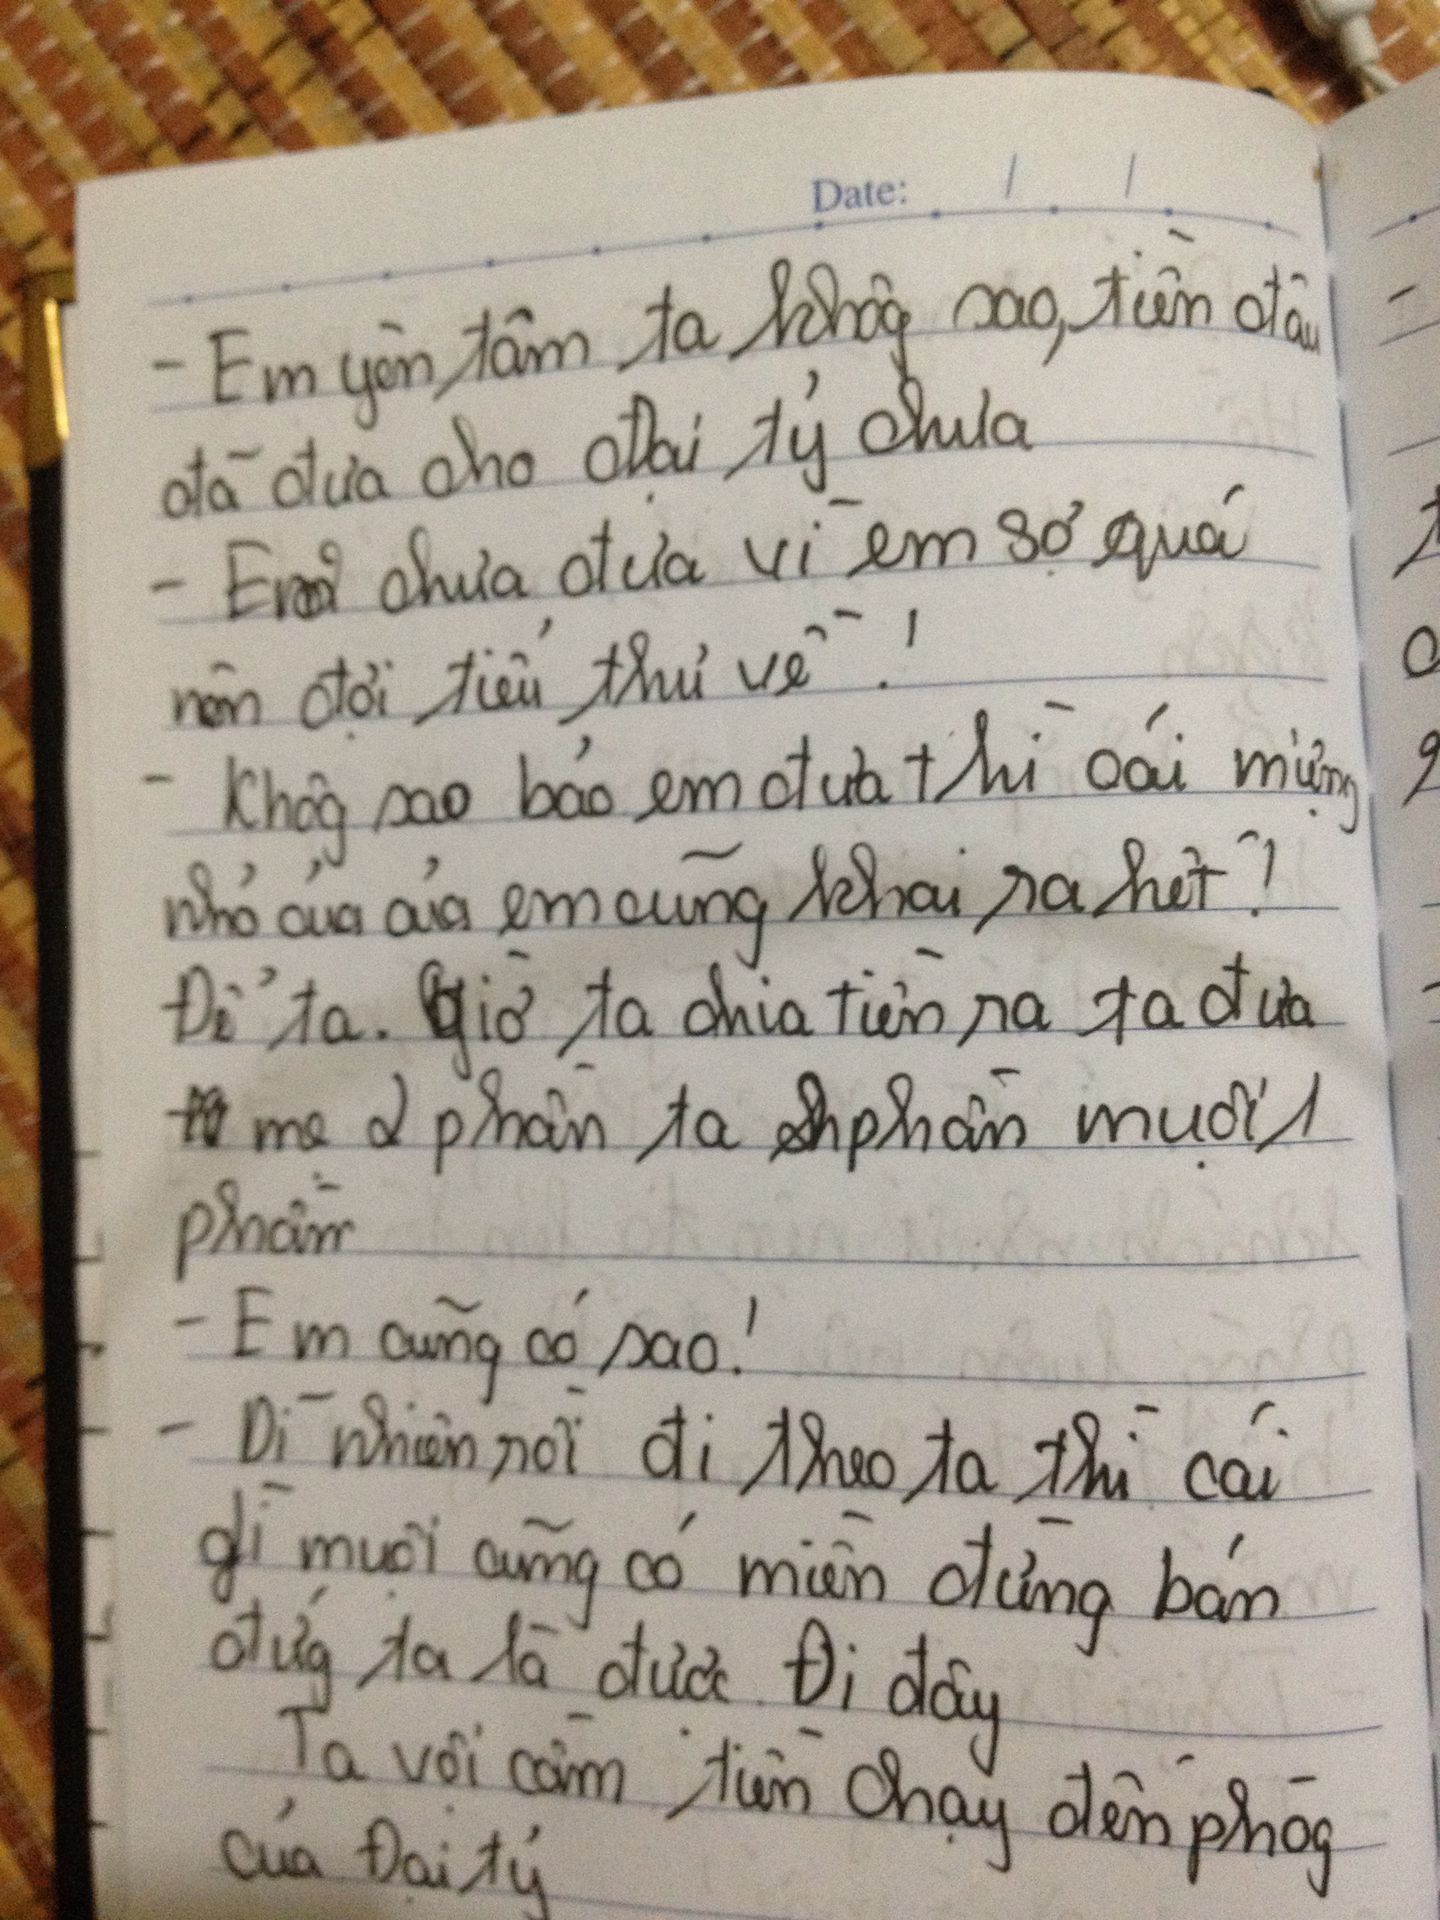 Date: / /
- Em yên tâm ta khôg sao, tiền đâu
đã đưa cho Đại tỷ chưa
- Em chưa đưa vì em sợ quá
nên đợi tiểu thư về!
- Khôg sao bảo em đưa thì cái mừng
nhỏ của của em cũng khai ra hết!
Để ta. giờ ta chia tiền ra ta đưa
mẹ 2 phần ta phần muội 1
phần
- Em cũng có sao!
- Dĩ nhiên rồi đi theo ta thì cái
gì muội cũng có miễn đừng bán
đứg ta là được. Đi đây
Ta vội cầm tiền chạy đến phòg
của Đại tỷ